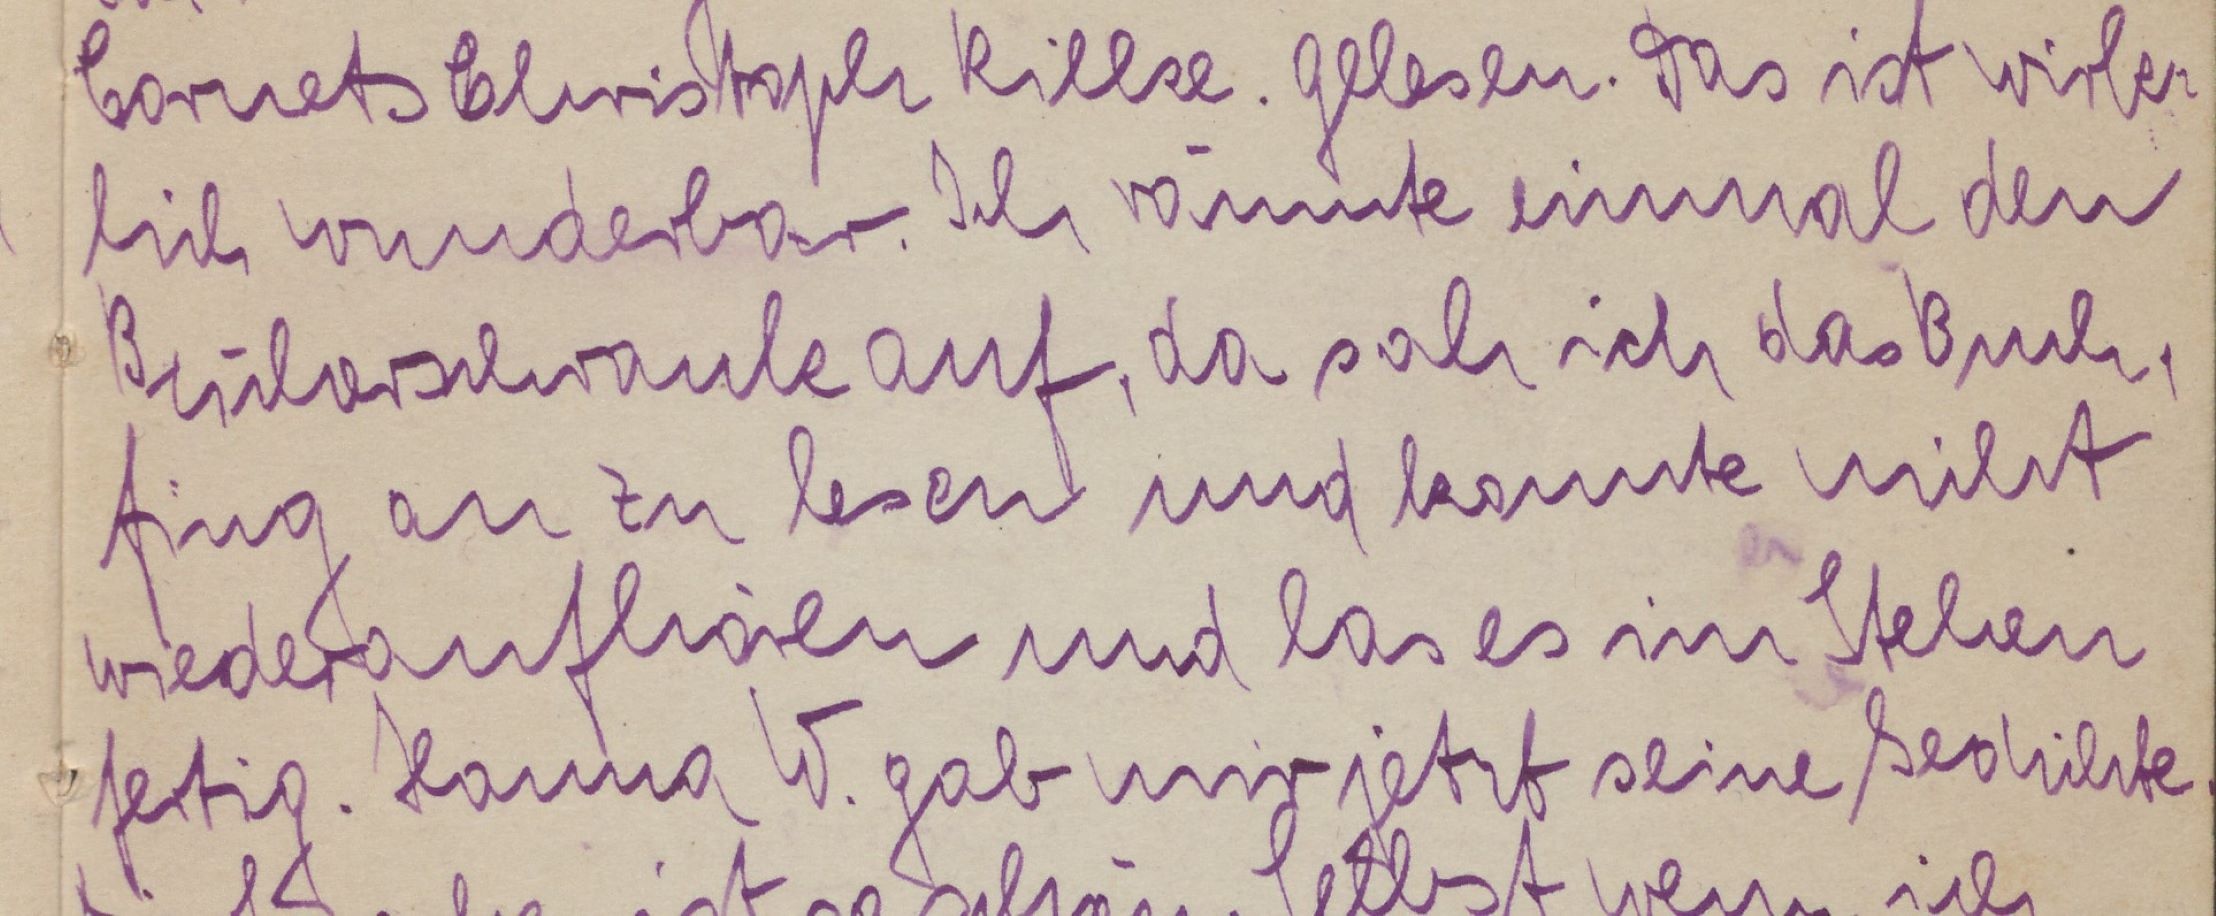 Cornets Christoph Rillke. gelesen. Das ist wirk-
lich wunderbar. Ich räumte einmal den
Bücherschrank auf, da sah ich das Buch,
fing an zu lesen und konnte nicht
wieder aufhören und las es im Stehen
fertig. Hanna W. gab mir jetzt seine Gedichte.
ist so schön. Selbst wenn ich